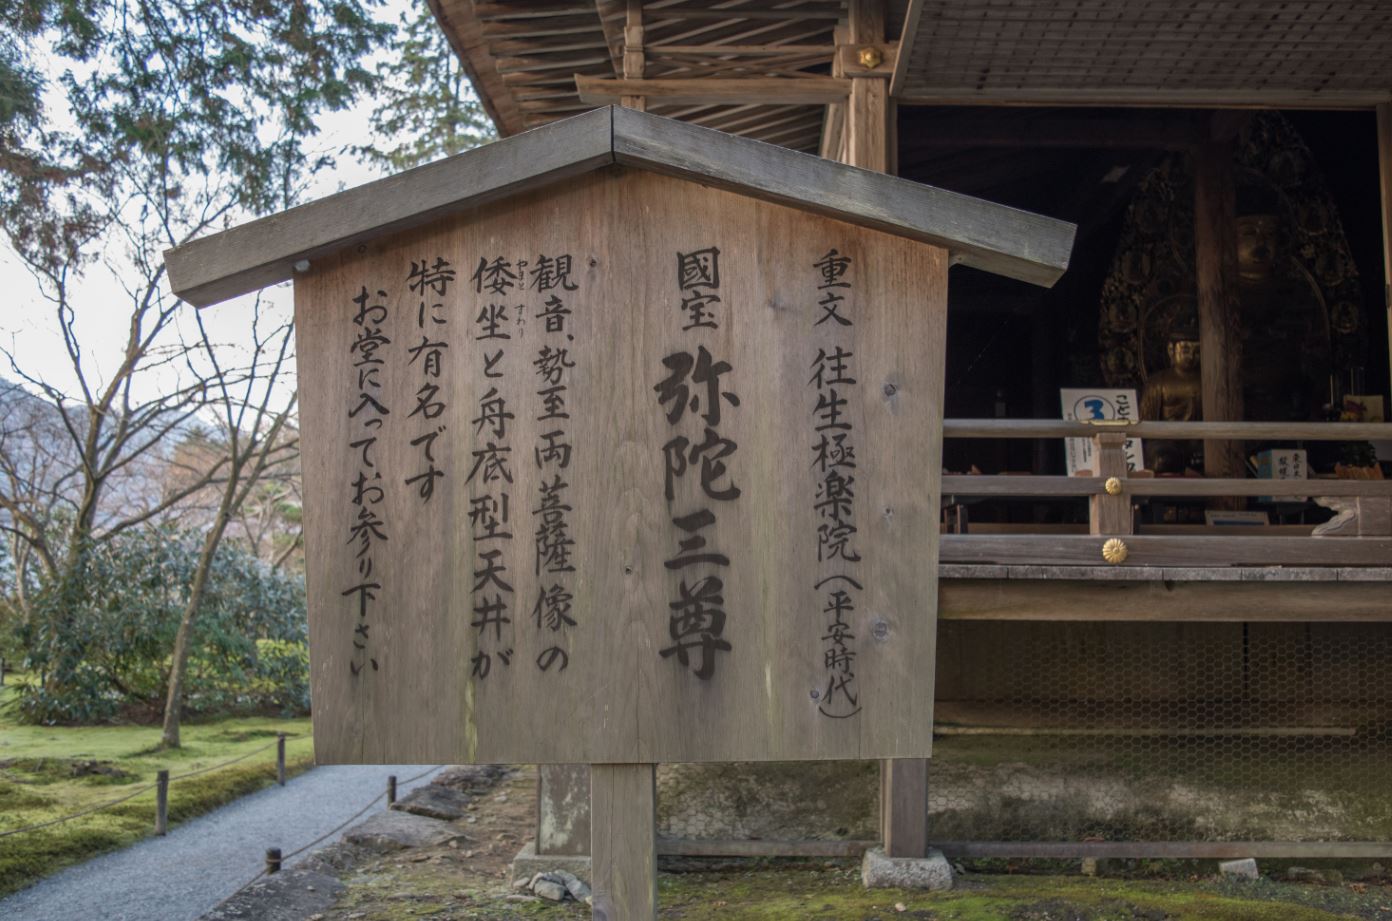 重文 往生極楽院（平安時代）
國宝 弥陀三尊
観音、勢至両菩薩像の
倭坐と舟底型天井が
やまと すわり
特に有名です
お堂に入ってお参り下さい
3